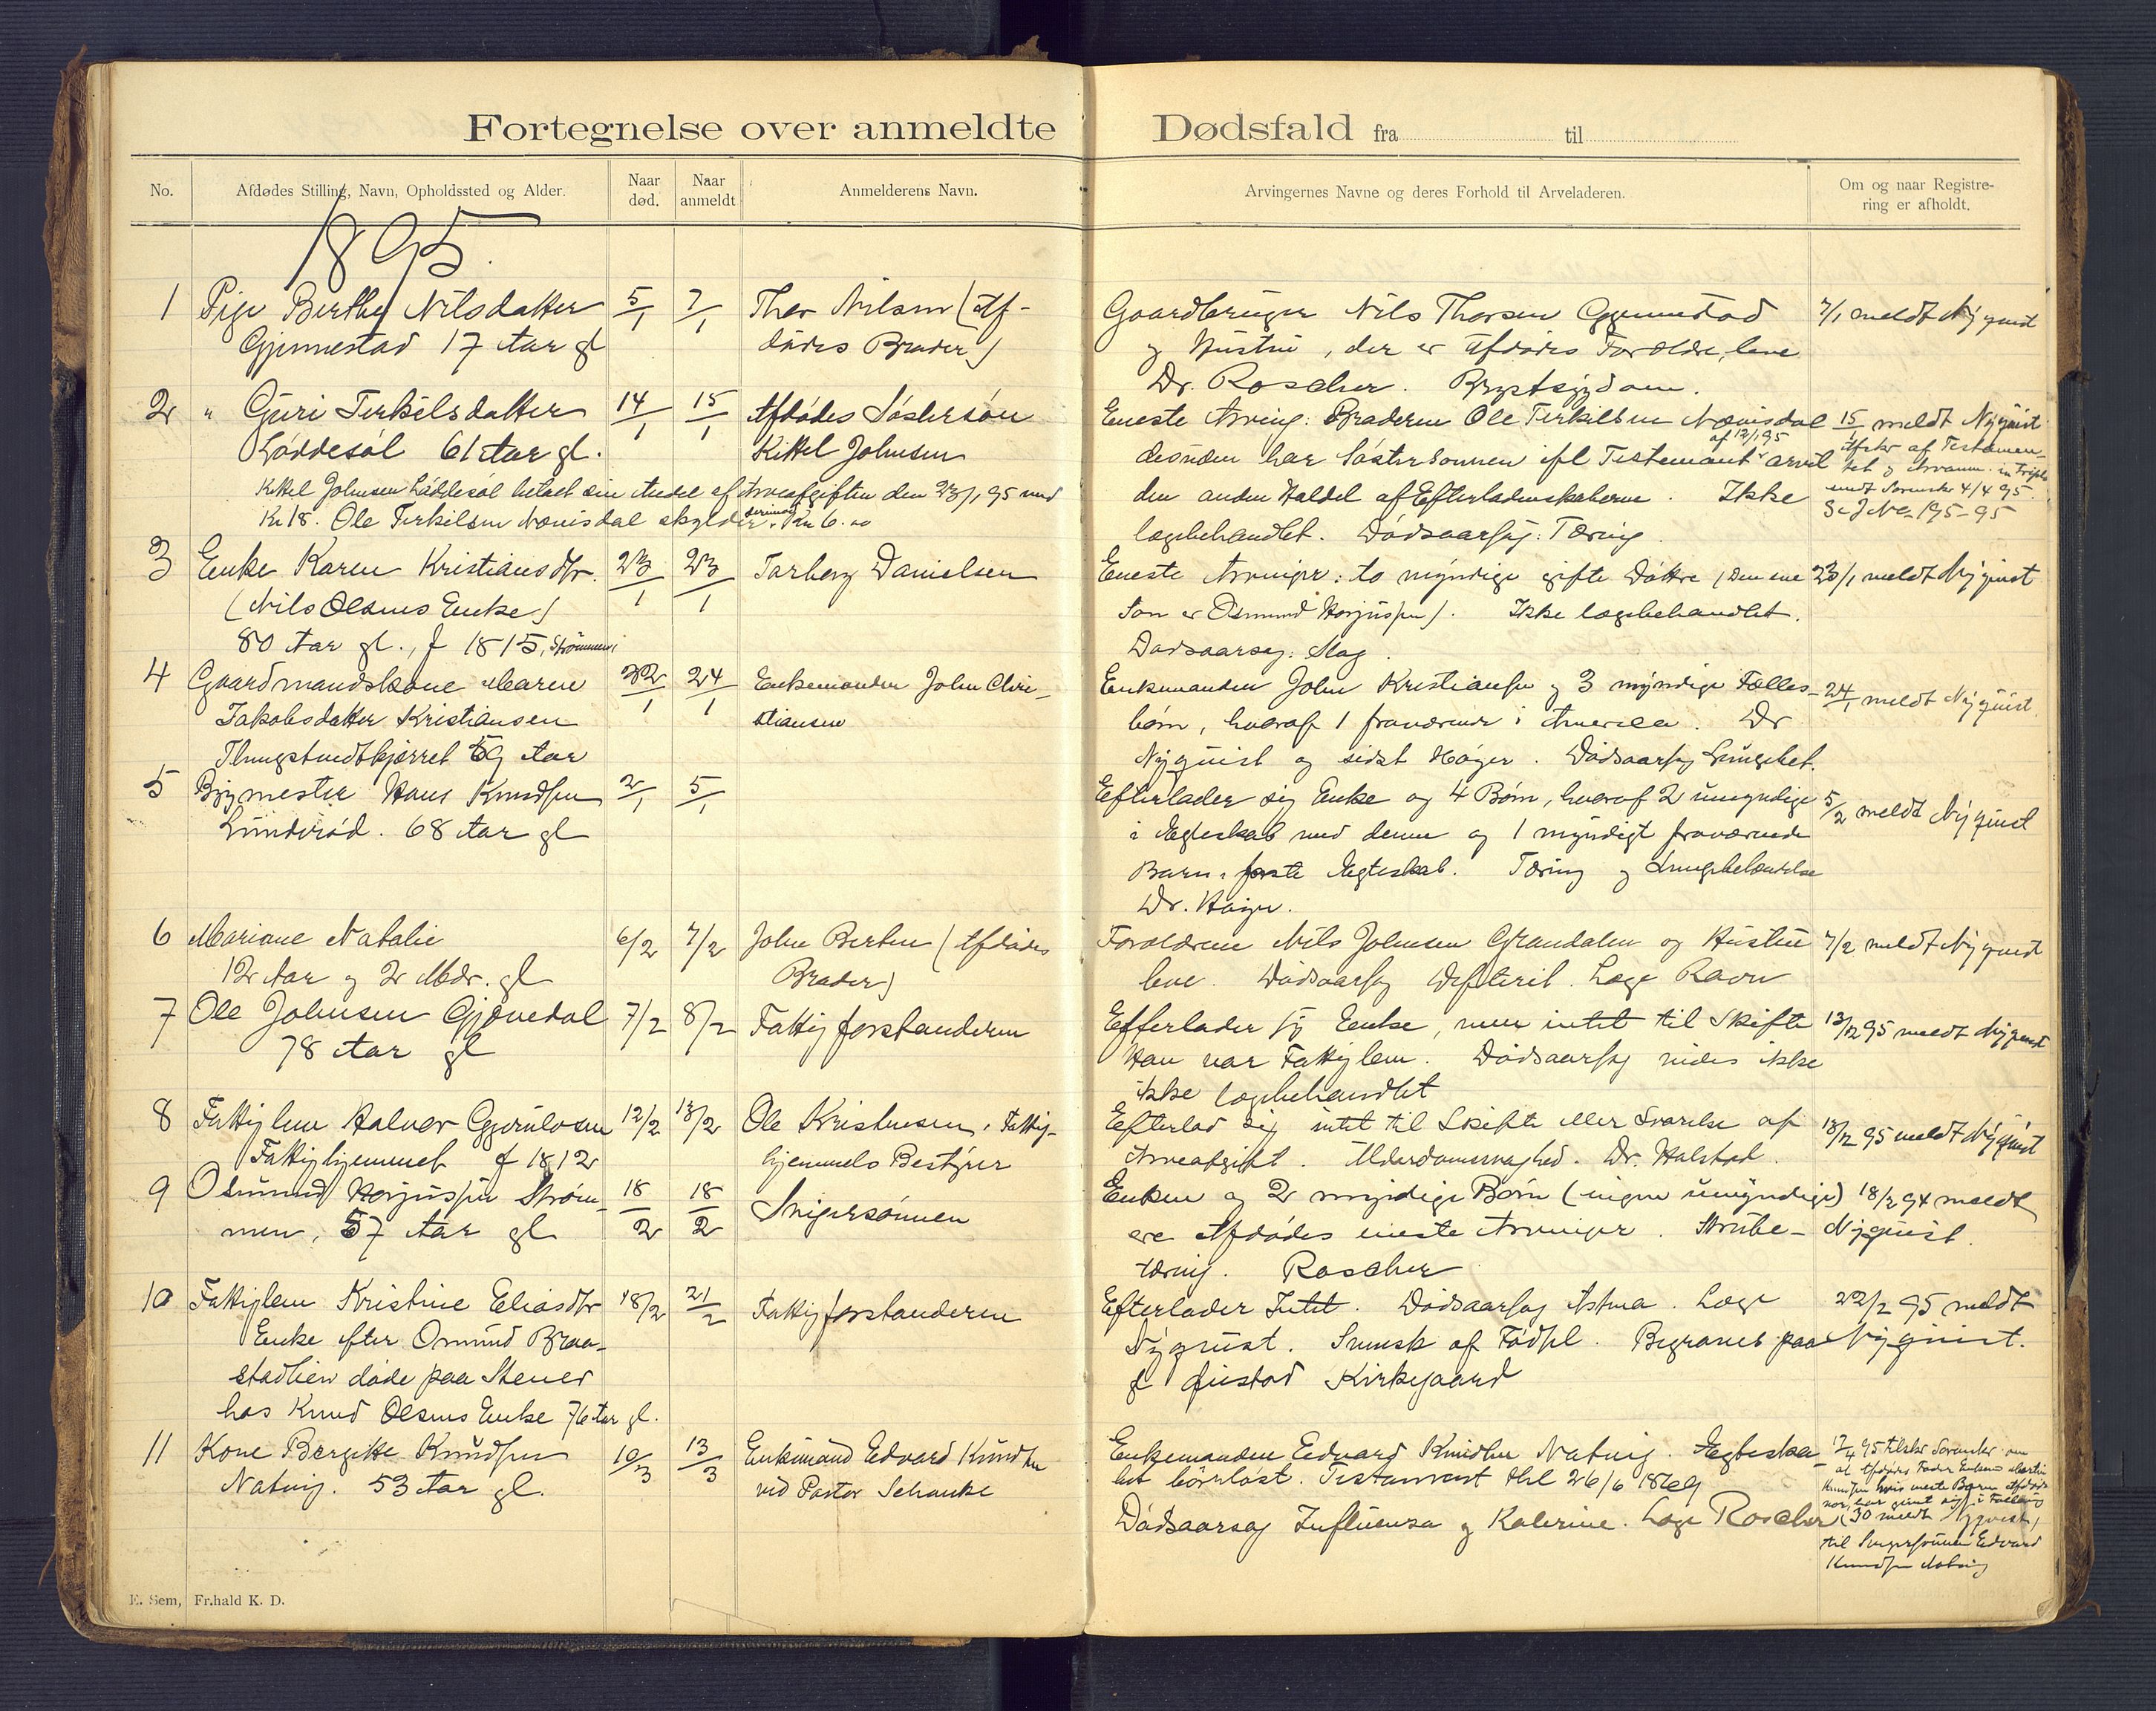 Fortegnelse over anmeldte Dødsfald fra til
No. Afdødes Stilling, Navn, Opholdssted og Alder. Naar død. Naar anmeldt Anmelderens Navn. Arvingernes Navne og deres Forhold til Arveladeren. Om og naar Registrering er afholdt.
1895.
1 Pige Berthe Nilsdatter 5/1 7/1 Thor Nilsen (Af- Gaardbruger Nils Thorsen Gjennestad 7/1 meldt Nyquist
Gjennestad 17 Aar gl dødes Broder) og Hustru, der er Afdødes Forældre, leve
Dr. Roscher. Brystsygdom.
2 " Guri Terkelsdatter 14/1 15/1 Afdødes Søstersøn Eneste Arving: Broderen Ole Terkilsen Nævisdal 15/1 meldt Nyquist
Løddesøl 61 Aar gl. Kittel Johnsen desuden har Søstersønnen ifl Testament af 12/1 95 arvet Afskr af Testamen-
Kittel Johnsen Løddesøl betalt sin Andel af Arveafgiften den 23/1 95 med den anden Haldel af Efterladenskaberne. Ikke tet
sendt Sorenskr 4/4 95.
Kr 18. Ole Terkilsen Nævisdal skylder Kr 6.00 lægebehandlet. Dødsaarsag: Tæring. 195-95
3 Enke Karen Kristiansdtr. 23/1 23/1 Torberg Danielsen Eneste Arvinger: to myndige gifte Døttre (Den ene 23/1 meldt Nyquist
(Nils Olsens Enke) Søn er Osmund Horjussen). Ikke lægebehandlet.
80 Aar gl., f 1815, Strømmen Dødsaarsag: Slag.
4 Gaardmandskone Maren 22/1 24/1 Enkemanden John Chri- Enkemanden John Kristiansen og 3 myndige Fælles- 24/1 meldt Nyquist
Jakobsdatter Kristiansen stiansen børn, hvoraf 1 fraværende i America. Dr
59 Aar Nyquist og sidst Høyer. Dødsaarsag Lungebet.
5 Bygmester Hans Knudsen 2/1 5/1 Efterlader sig Enke og 4 Børn, hvoraf 2 umyndige 5/2 meldt Nyquist
Lunderød. 68 Aar gl i Ægteskab med denne og 1 myndigt fraværende
Barn i første Ægteskab. Tæring og Lungebetændelse
Dr. Høyer.
6 Mariane Natalie 6/2 7/2 John Berten (Afdødes Forældrene Nils Johnsen Grandalen og Hustru 7/2 meldt Nyquist
12 Aar og 2 Mdr. gl Broder) leve. Dødsaarsag Difterit. Læge Ravn
7 Ole Johnsen Gjøvedal 7/2 8/2 Fattigforstanderen Efterlader sig Enke, men intet til Skifte 13/2 95 meldt Nyquist
78 Aar gl Han var Fattiglem. Dødsaarsag vides ikke
ikke lægebehandlet
8 Fattiglem Halvor Gjerulvsen 12/2 13/2 Ole Kristensen, Fattig- Efterlod sig intet til Skifte eller Svarelse af 13/2 95 meldt Nyquist
Fattighjemmet f 1812 hjemmets Bestyrer Arveafgift. Alderdomssvaghed. Dr. Halstad.
9 Osmund Horjussen Strøm- 18/2 18/2 Svigersønnen Enken og 2 myndige Børn (ingen umyndige) 18/2 94 meldt
men, 57 Aar gl ere Afdødes eneste Arvinger. Strube- Nyquist.
tæring. Roscher
10 Fattiglem Kristine Eliasdtr 18/2 21/2 Fattigforstanderen Efterlader Intet. Dødsaarsag Astma. Læge 22/2 95 meldt
Enke efter Osmund Braa- Nyquist. Svensk af Fødsel. Begraves paa Nyquist.
stadlien døde paa Stener Øiestad Kirkegaard
hos Knud Olsens Enke 76 Aar gl.
11 Kone Bergitte Knudsen 10/3 13/3 Enkemand Edvard Knudsen Enkemanden Edvard Knudsen Natvig. Ægteska- 17/4 95 tilskr Sorenskr om
Natvig. 53 Aar gl. ved Pastor Schanke bet børnløst. Testament dtl 26/6 1869 at Afdødes Fader
Dødsaarsag Influensa og Kolerine. Læge Roscher
til Svigersønnen Edvard
Knudsen Natvig
E. Sem, Fr.hald K. D.